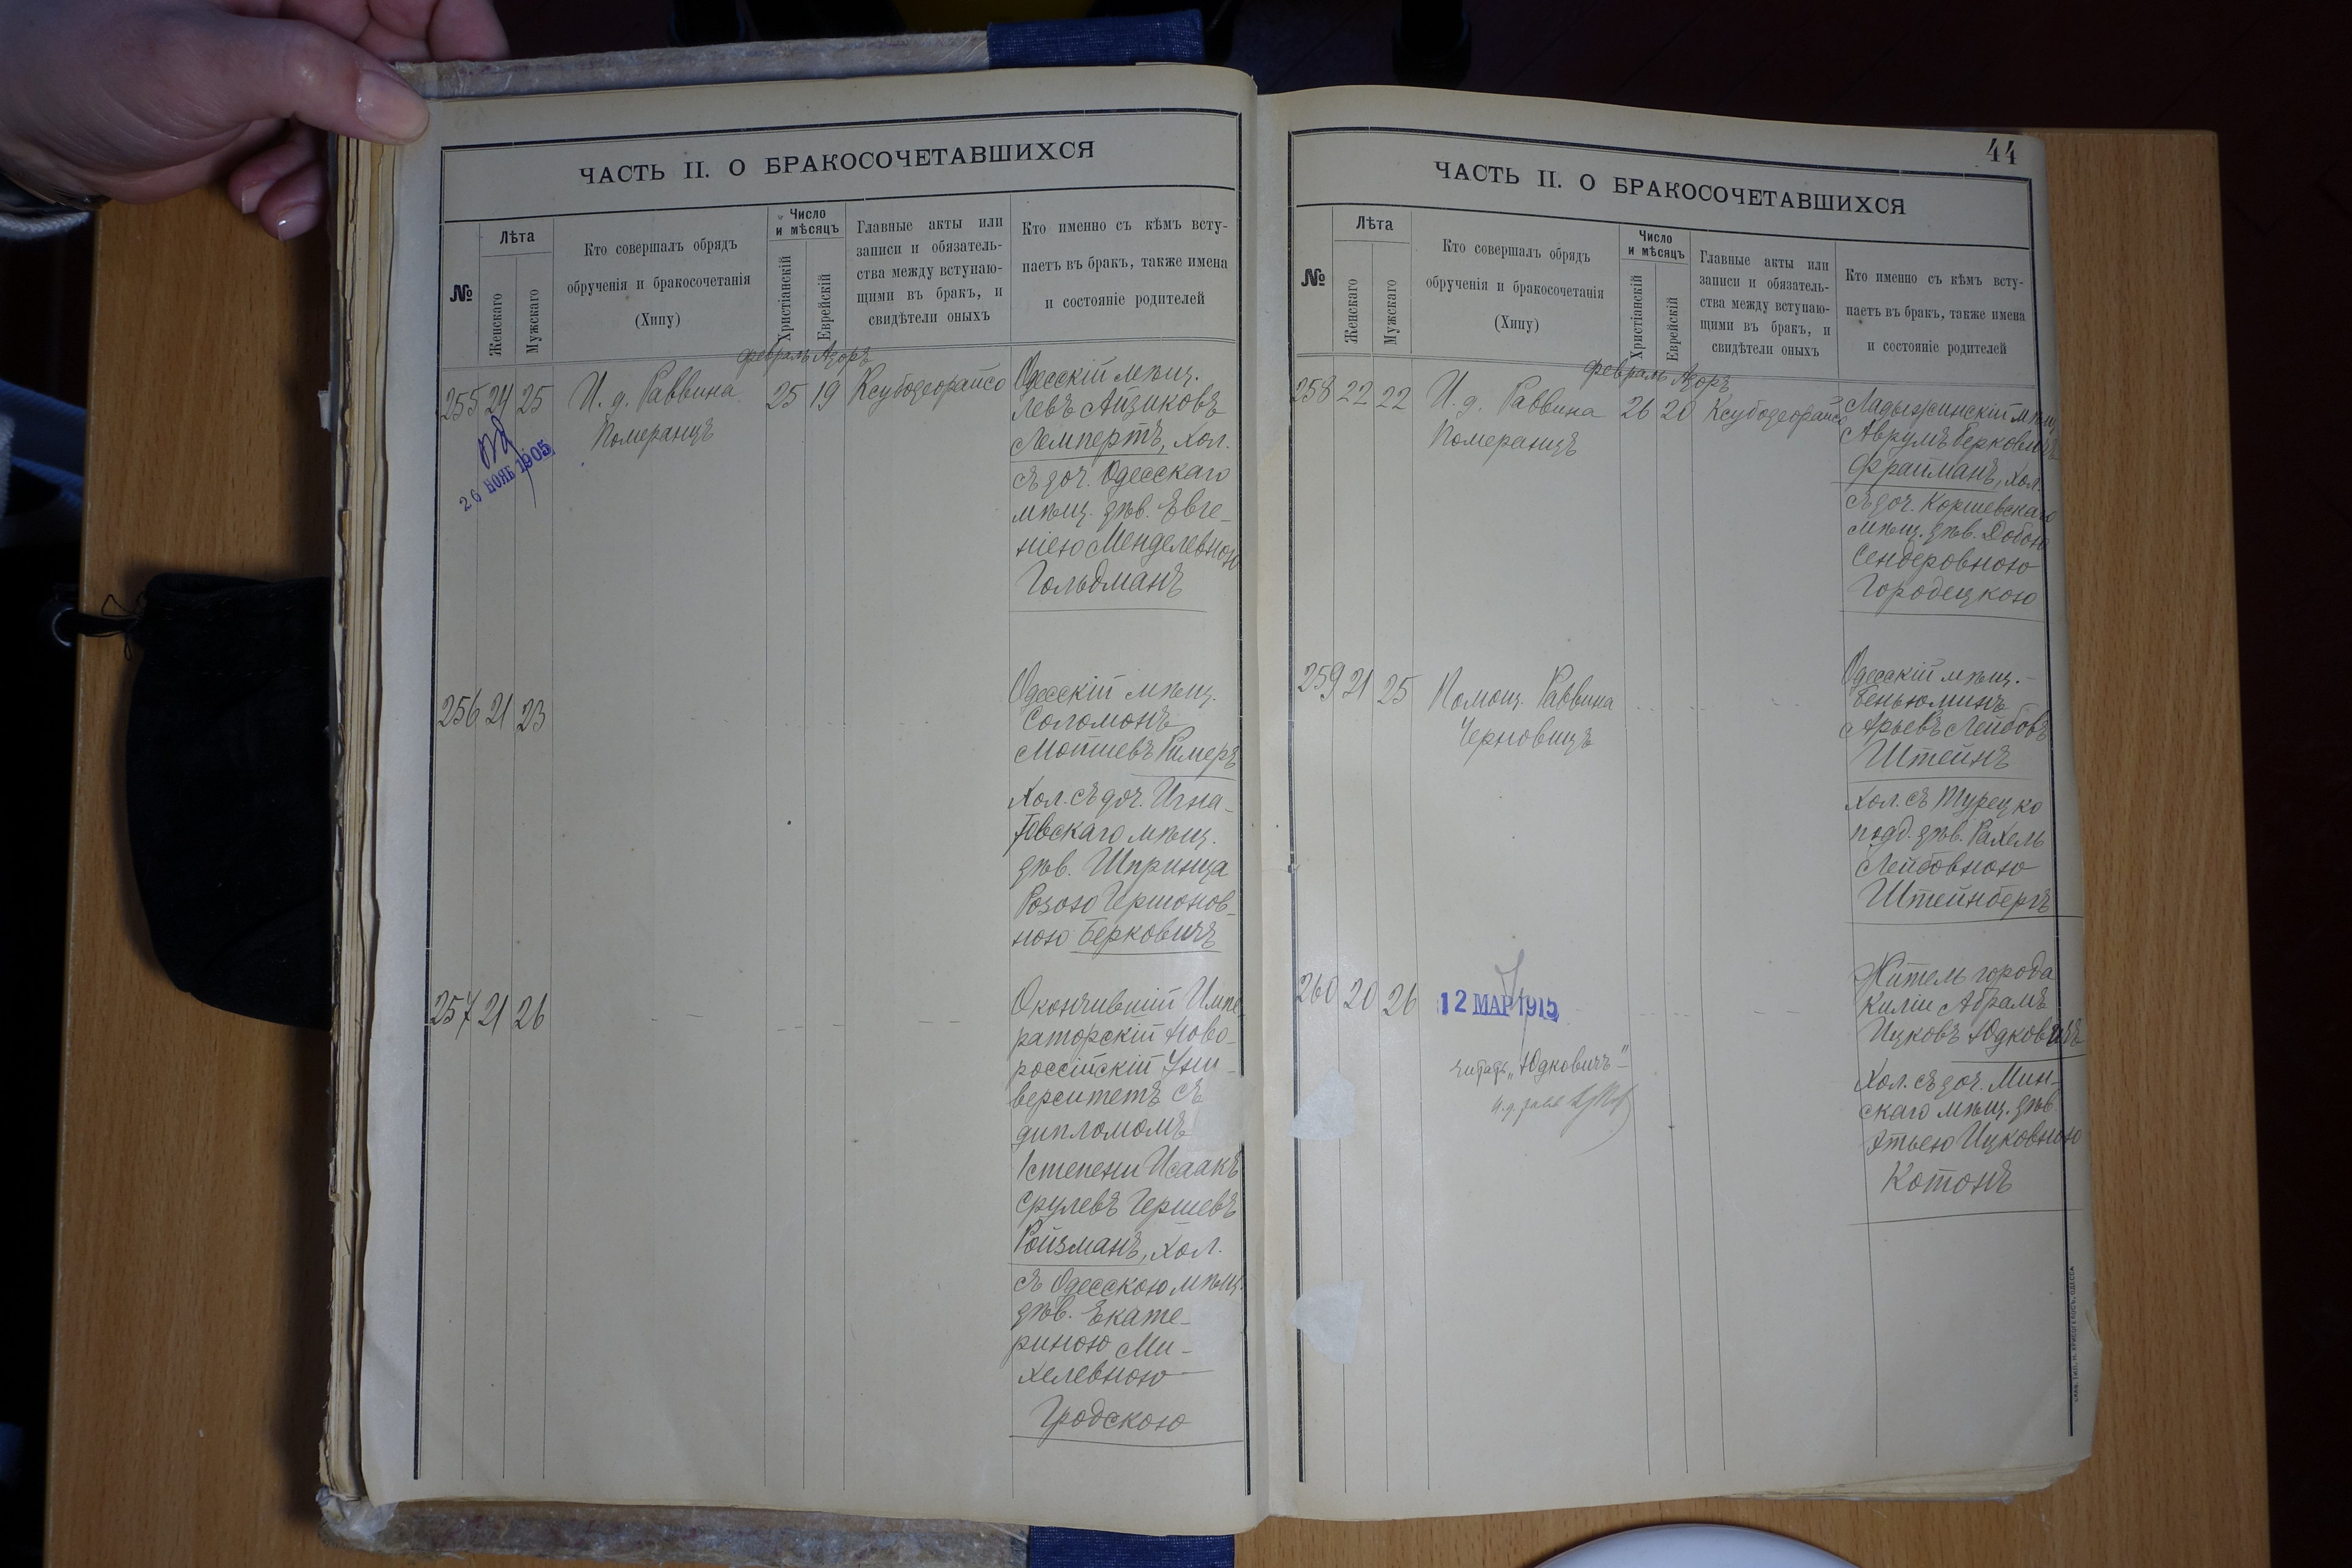 ЧАСТЬ II. О БРАКОСОЧЕТАВШИХСЯ
№
Лѣта
Женскаго
Мужскаго
Кто совершалъ обрядъ
обрученія и бракосочетанія
(Хипу)
Число
и мѣсяцъ
Христіанскій
Еврейскій
Главные акты или
записи и обязатель-
ства между вступаю-
щими въ бракъ, и
свидѣтели оныхъ
Кто именно съ кѣмъ всту-
паетъ въ бракъ, также имена
и состояніе родителей
февраль Адоръ
255 24 25 И. д. Раввина 25 19
Померанцъ
26 НОЯБ 1905
Одесскій мѣщ.
Левъ Аизиковъ
Лемпертъ, хол.
съ доч. Одесскаго
мѣщ. дѣв. Евге-
ніею Менделевною
Гольдманъ
256 21 23
Одесскій мѣщ.
Соломонъ
Мотиевъ Римеръ
Хол. съ доч. Игна-
товскаго мѣщ.
дѣв. Шпринца
Розою Гершонов-
ною Берковичъ
257 21 26
Окончившій Импе-
раторскій Ново-
россійскій Уни-
верситетъ съ
дипломомъ
I степени Исаакъ
Срулевъ Гершевъ
Ройзманъ, хол.
съ Одесскою мѣщ.
дѣв. Екате-
риною Ми-
хелевною
Гродскою
44
ЧАСТЬ II. О БРАКОСОЧЕТАВШИХСЯ
№
Лѣта
Женскаго
Мужскаго
Кто совершалъ обрядъ
обрученія и бракосочетанія
(Хипу)
Число
и мѣсяцъ
Христіанскій
Еврейскій
Главные акты или
записи и обязатель-
ства между вступаю-
щими въ бракъ, и
свидѣтели оныхъ
Кто именно съ кѣмъ всту-
паетъ въ бракъ, также имена
и состояніе родителей
февраль Адоръ
258 22 22 И. д. Раввина 26 20
Померанцъ
Ладыжинскій мѣщ.
Аврумъ Берковичъ
Фрайманъ, хол.
съ доч. Коршевскаго
мѣщ. дѣв. Добою
Сендеровною
Городецкою
259 21 25 Помощ. Раввина
Черновицъ
Одесскій мѣщ.
Беньюминъ
Арьевъ Лейбовъ
Штейнъ
хол. съ Турецко
подд. дѣв. Рахель
Лейбовною
Штейнбергъ
260 20 26
12 МАР 1915
читать „Юдковичъ"
Житель города
Киліи Абрамъ
Ицковъ Юдковичъ
Хол. съ доч. Мин-
скаго мѣщ. дѣв.
Этьею Ицковною
Котонъ